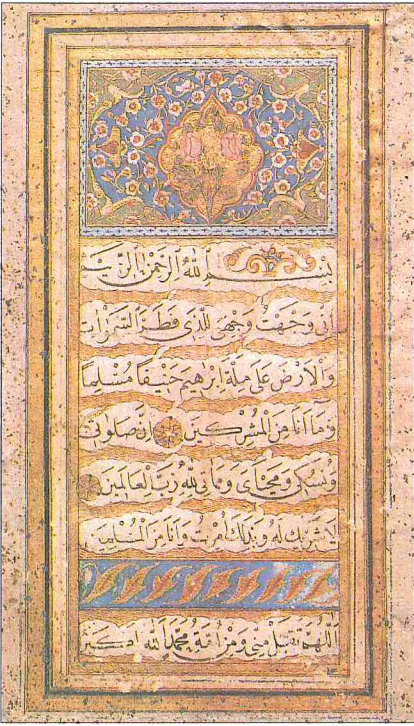 بِسْمِ اللهِ الرَّحْمٰنِ الرَّحِيمِ
اِنِّى وَجَّهْتُ وَجْهِىَ لِلَّذِى فَطَرَ السَّمٰوَاتِ
وَالْاَرْضَ عَلٰى مِلَّةِ اِبْرٰهِيمَ حَنِيفًا مُسْلِمًا
وَمَا اَنَا مِنَ الْمُشْرِكِينَ اِنَّ صَلَوتِى
وَنُسُكِى وَمَحْيَاىَ وَمَمَاتِى لِلّٰهِ رَبِّ الْعَالَمِينَ
لَا شَرِيكَ لَهُ وَبِذٰلِكَ اُمِرْتُ وَاَنَا مِنَ الْمُسْلِمِينَ
اَللّٰهُمَّ تَقَبَّلْ مِنِّى وَمِنْ اُمَّةِ مُحَمَّدٍ اَللهُ اَكْبَرُ